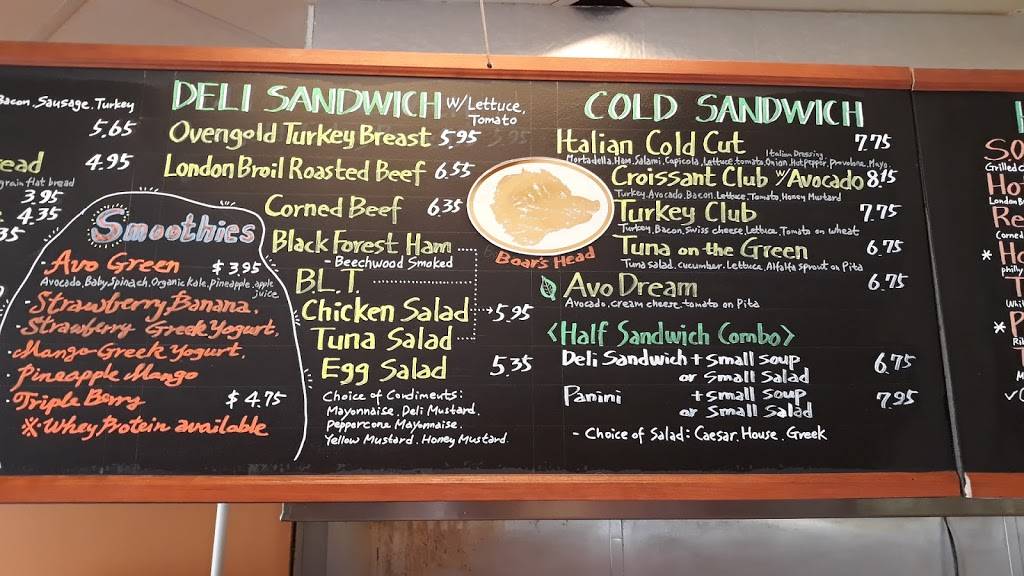 Bacon, Sausage, Turkey
5.65
4.95
grain flat bread
3.95
4.35
35
Smoothies
· Avo Green $3.95
Avocado, Baby Spinach, Organic Kale, pineapple, apple juice
· Strawberry Banana,
· Strawberry Greek Yogurt,
· Mango Greek Yogurt,
· Pineapple Mango
· Triple Berry $4.75
※ Whey Protein available
DELI SANDWICH W/Lettuce, Tomato
Ovengold Turkey Breast 5.95
London Broil Roasted Beef 6.55
Corned Beef 6.35
Black Forest Ham
- Beechwood Smoked
B.L.T
Chicken Salad 5.95
Tuna Salad
Egg Salad 5.35
Choice of Condiments:
Mayonnaise, Deli Mustard,
Peppercone Mayonnaise,
Yellow Mustard, Honey Mustard
Boar's Head
COLD SANDWICH
Italian Cold Cut 7.75
Italian Dressing
Mortadella, Ham, Salami, Capicola, Lettuce, tomato, Onion, Hot Pepper, Provolone, Mayo
Croissant Club w/Avocado 8.15
Turkey, Avocado, Bacon, Lettuce, Tomato, Honey Mustard
Turkey Club 7.75
Turkey, Bacon, Swiss cheese, Lettuce, Tomato on wheat
Tuna on the Green 6.75
Tuna salad, cucumber, Lettuce, Alfalfa sprout on Pita
Avo Dream 6.75
Avocado, cream cheeze, tomato on Pita
<Half Sandwich Combo>
Deli Sandwich + small soup 6.75
or Small Salad
Panini + small soup 7.95
or Small Salad
- Choice of Salad: Caesar, House, Greek